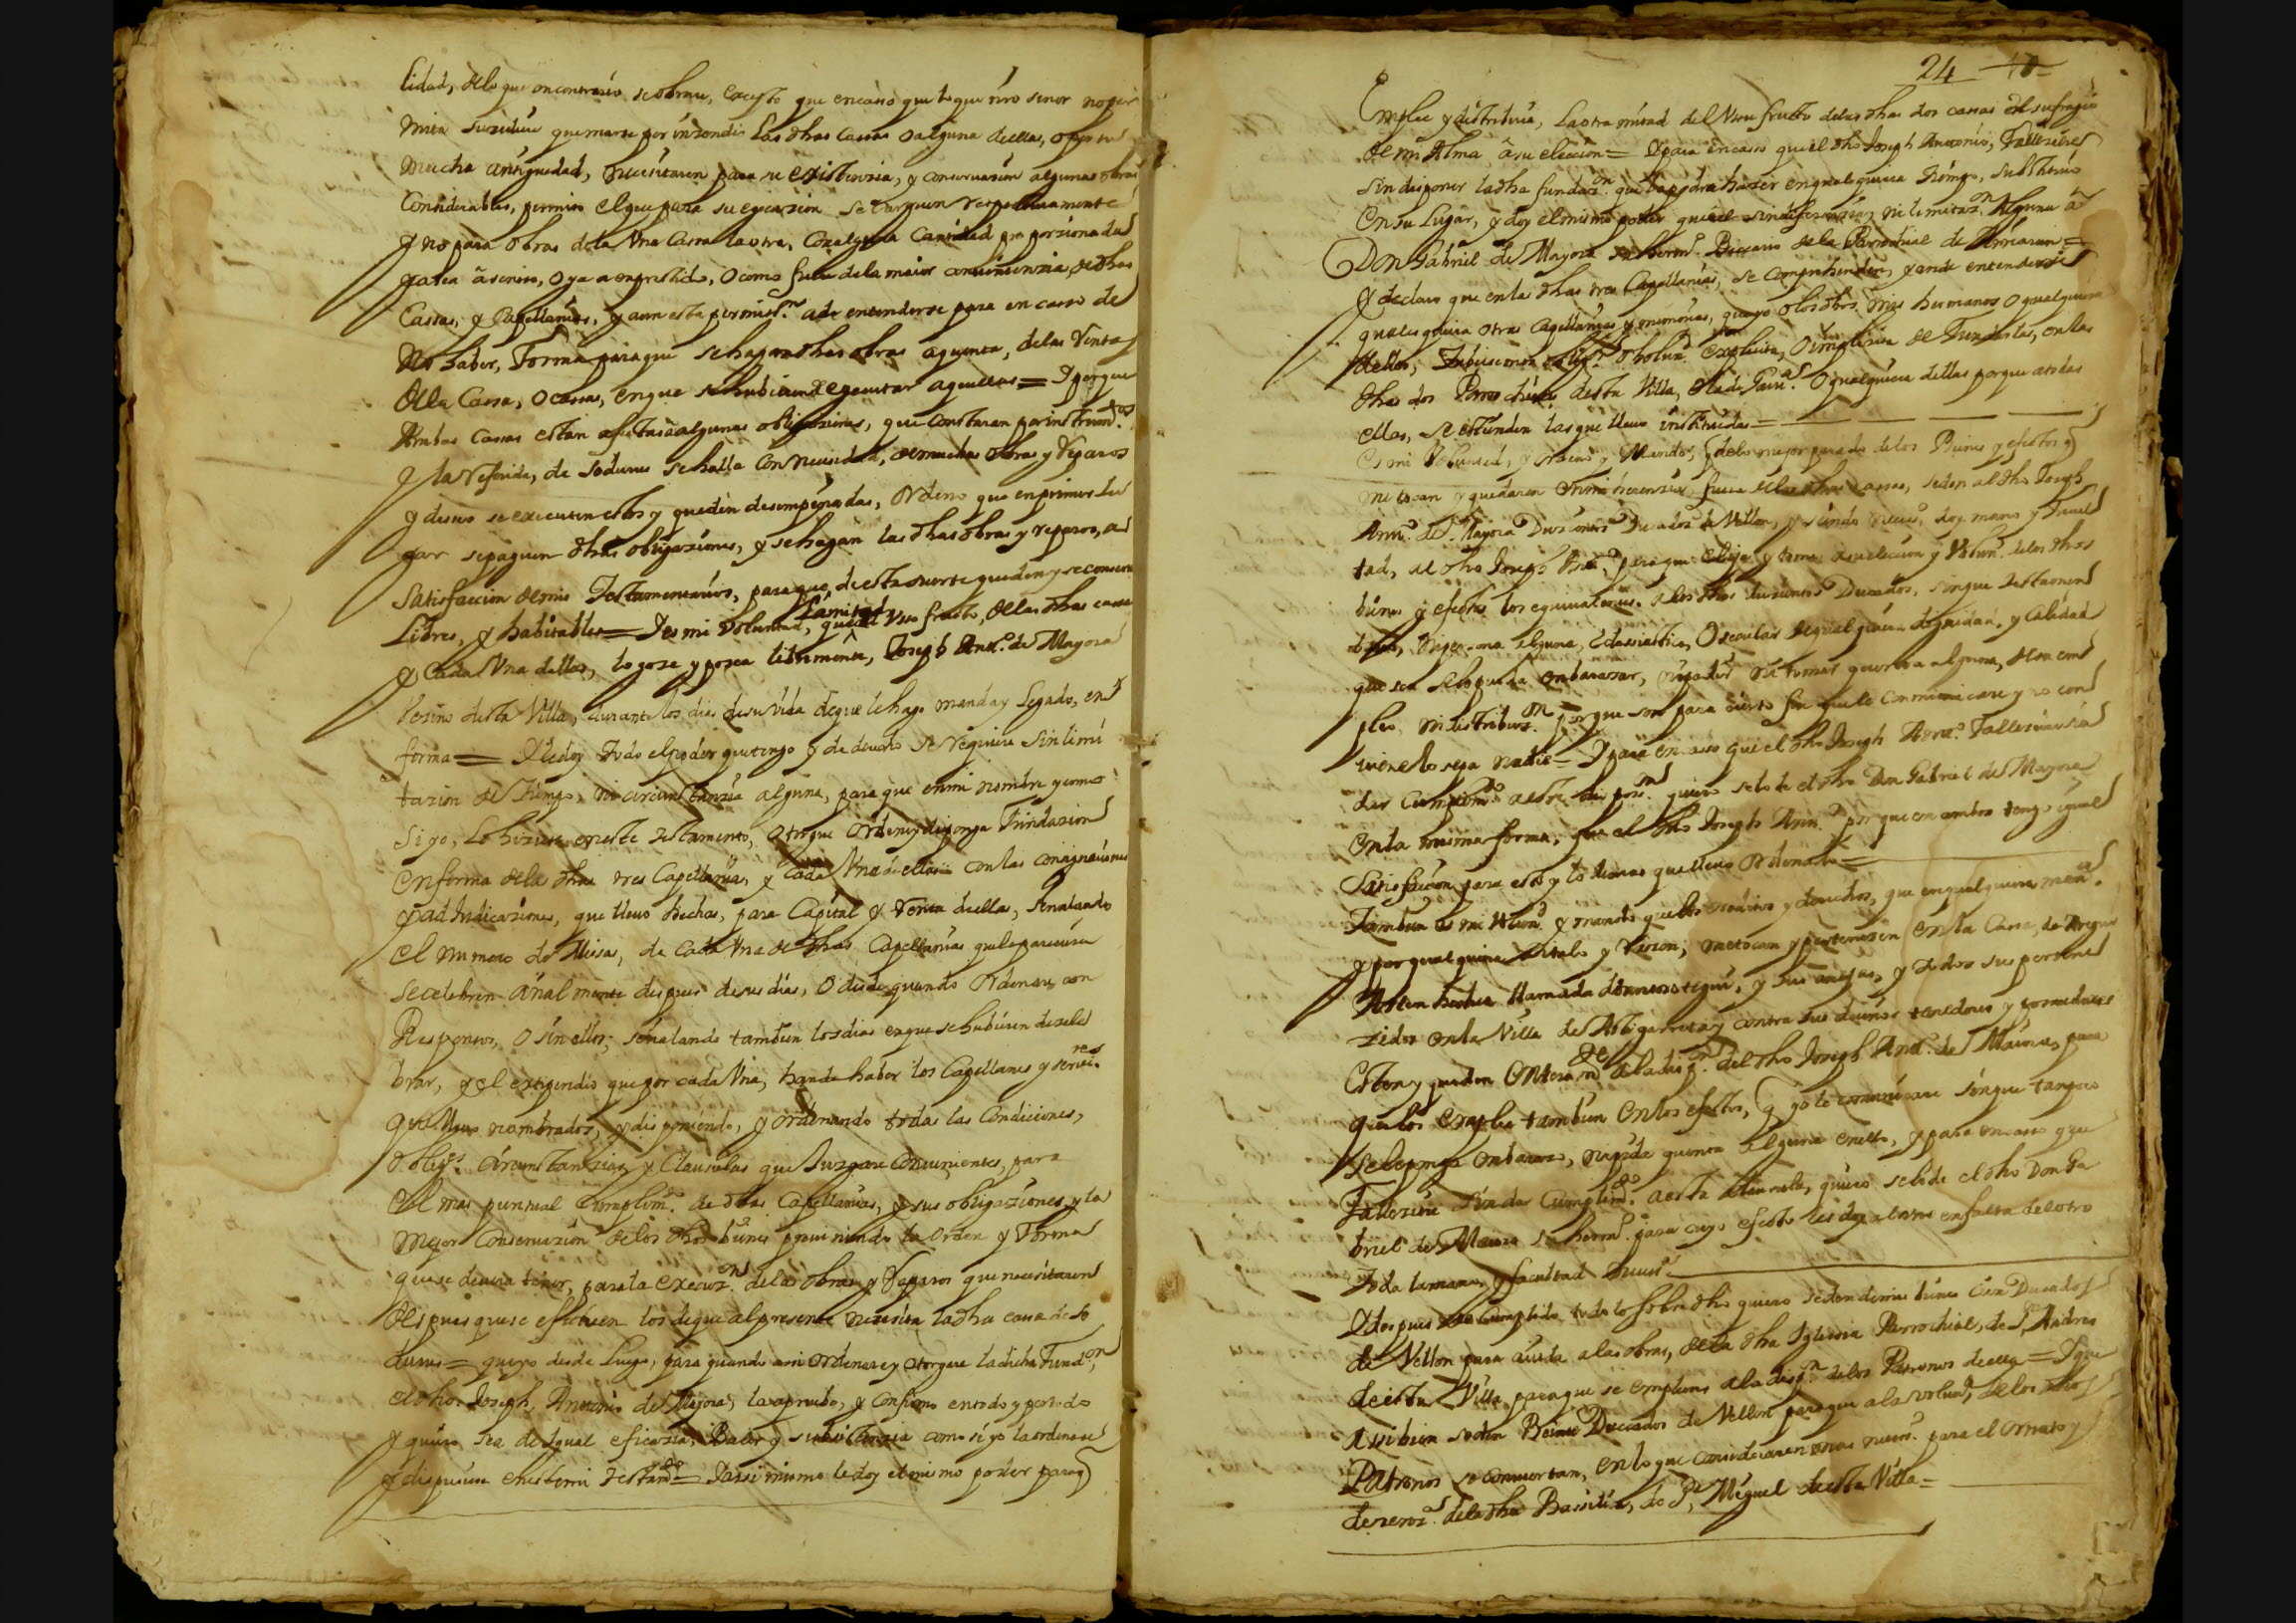 lidad, de lo que en contrario se obrare, excepto que en caso que lo que nro senor no per
mita suzediese quemarse por inzendio las dhas cassas o alguna de ellas, o por su
mucha antiguedad, nezesitaren para su existenzia, y conservazion algunas obras
Considerables, permito el que para su execuzion se carguen respectivamente
y no para obras de la Una Cassa la otra, Con alguna Cantidad proporzionada
ya sea â senso, o ya a emprestido, o como fuere de la maior conueniensia de dhas
Cassas, y Capellanias, y aun esta permiss.n a de entenderse para en casso de
No haber, Forma para que se hagan dhas obras a quenta, de las Rentas
de la Cassa, o cassas, en que se hubieren de egecutar aquellas = Y porque
Ambas cassas estan afectas â algunas obligaziones, que Constaran por instrum.tos
y la referida, de Sodurus se halla Con nezesidad, de muchas obras y reparos
y deseo se executen estos y queden desempeñadas, Ordeno que en primer lu
gar se paguen dhas obligaziones, y se hagan las dhas obras y reparos, a
Satisfaccion de mis Testamentarios, para que, de esta suerte queden y se conserven
Libres, y habitables = Y es mi Voluntad, que la mitad Uso fructo, de las dhas cassas
y Cada Una dellas, lo goze y posea libremente, Joseph Ant.o de Mayora
Vezino desta Villa, durante los dias de su Vida de que le hago manda y Legado, en
forma = Y le doy Todo el poder que tengo y de derecho se requiere sin limi
tazion de Tiempo, ni circunstanzia alguna, para que en mi nombre y como
si yo, Lo hiziese en este testamento, otorgue ordene y disponga Fundazion
En forma de las dhas tres Capellanias, y Cada Una de ellas con las consignaciones
y adjudicaziones, que lleuo hechas, para Capital y Renta de ellas, Señalando
El numero de Missas, de Cada Una de dhas Capellanias que le pareciere
se celebren anualmente despues de sus dias, O desde quando Ordenare, con
Responsos, O sin ellos; señalando tambien los dias en que se hubieren de cele
brar, y el estipendio que por cada Una, han de haber los Capellanes y servi.res
que lleuo nombrados, y disponiendo, y ordenando todas las Condiciones,
Oblig.s Circunstanzias y Clausulas que Juzgare Conuenientes, para
El mas puntual Complim.to de dhas Capellanias, y sus obligaziones, y la
mejor Conseruazion de los dhos bienes preuiniendo la Orden y Forma
que se deuera tener, para la execuz.on de las obras y Reparos que necesitaren
despues que se efectuen los de que al presente necesita la dha cassa de So
durus = que yo desde Luego, para quando assi Ordenare y otorgare la dicha Fundz.on,
el dho Joseph Antonio de Mayora, la apruebo, y Confirmo en todo y por todo
y quiero sea de Igual eficazia, Balor y substanzia como si yo la ordenare
y dispusiere en este mi testam.to = Y assi mismo le doy el mismo poder para q
24
Emplee y distribuia, La otra mitad del Usu fructo de las dhas dos cassas en sufragio
de mi Alma â su eleccion = Y para en casso que el dho Joseph Antonio, Falleciere
sin disponer la dha fundaz.on que la podra hazer en qualquiera Tiempo, substituio
En su Lugar, y doy el mismo poder sin diferenzia ni limitaz.on Alguna â
Don Gabriel de Mayora su herm.o Vicario de la Parroquial de
Y declaro que en las dhas tres Capellanias, se comprehenden, y ande entenderse
quales quiera otras Capellanias y memorias, que yo o los dhos mis hermanos o qualquiera
dellos, Tubiesemos oblig.n O bolun.d explicita, O implicita de Fundarlas, en las
dhas dos Parrochias desta Villa, O qualquiera dellas porque a todas
ellas, se estienden las que lleuo instituidas =
Es mi Voluntad, y ordeno y Mando, q de lo mejor parado de los Bienes y efectos q
me tocan y quedaren en mi herenzia fuera de las dhas cassas, se den al dho Joseph
Ant.o de Mayora Duzientos Ducados de Vellon, y siendo nezes.o doy mano y Facul
tad, al dho Joseph Ant.o para que elija y tome a su eleccion y Volun.d de los dhos
bienes y efectos los equivalentes a los dhos duzientos Ducados, sin que Testamen
tarios, ni persona alguna, Eclesiastica, O secular de qualquiera dignidad, y Calidad
que sea se lo pueda embarazar, ni pedir ni tomar quenta alguna, de su em
pleo ni distribuz.on porque son para cierto fin que le Comunicare y no con
viene lo sepa nadie = Y para en casso que el dho Joseph Ant.o Falleciere sin
dar Cumplim.to a esta dispos.on quiero se lo de el dho Don Gabriel de Mayora
en la misma forma, que el dho Joseph Ant.o porque en ambos tengo igual
Satisfaccion para esto y lo demas que lleuo Ordenado =
Tambien es mi Volun.d y mando que los creditos y derechos, que en qualquiera man.a
y por qualquiera titulo y razon, me tocan y pertenezen en la Cassa, de
llamada y sus anejos, y Todos sus pertene
zidos en la Villa de Astigarreta y contra sus dueños tenedores y posehedores
Esten y queden Enteram.te a la disp.n del dho Joseph Ant.o de Maiora, para
que los emplee tambien en los efectos, q yo le comunicare sin que tampoco
se le ponga embarazo, ni pida quenta alguna en ello, y para en casso que
Falleziere sin dar Cumplim.to a esta Clausula, quiero se lo de el dho Don Ga
briel de Maiora su herm.o para cuyo efecto les doy al uno en falta del otro
Toda la mano, y facultad nezes.a
Y despues de Cumplido todo lo sobre dho quiero se den de mis bienes Cien Ducados
de Vellon para aiuda a las obras, de la dha Iglesia Parrochial, de S. Andres
de esta Villa, para que se empleen a la disp.n de los Patronos de ella = Y que
Assi bien se den Veinte Ducados de Vellon para que a la volun.d de los dhos
Patronos se conuiertan, en lo que consideraren mas nezes.o para el ornato y
dezenz.a de la dha Bassilica, de S. Miguel de esta Villa =